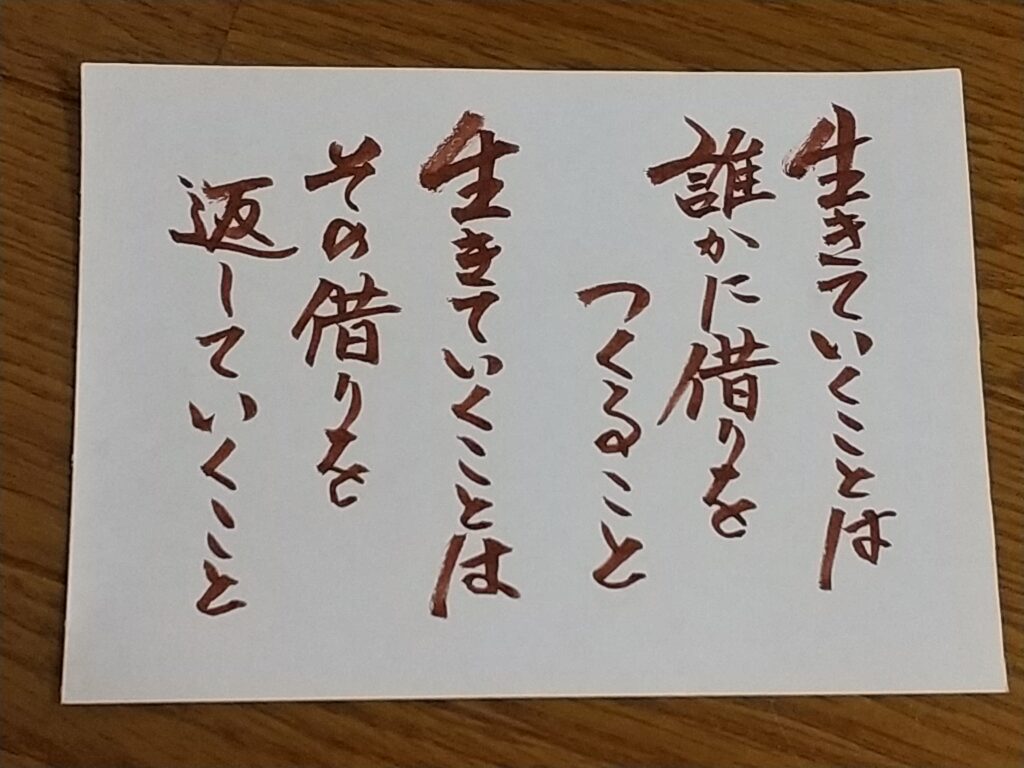 生きていくことは
誰かに借りを
つくること
生きていくことは
その借りを
返していくこと